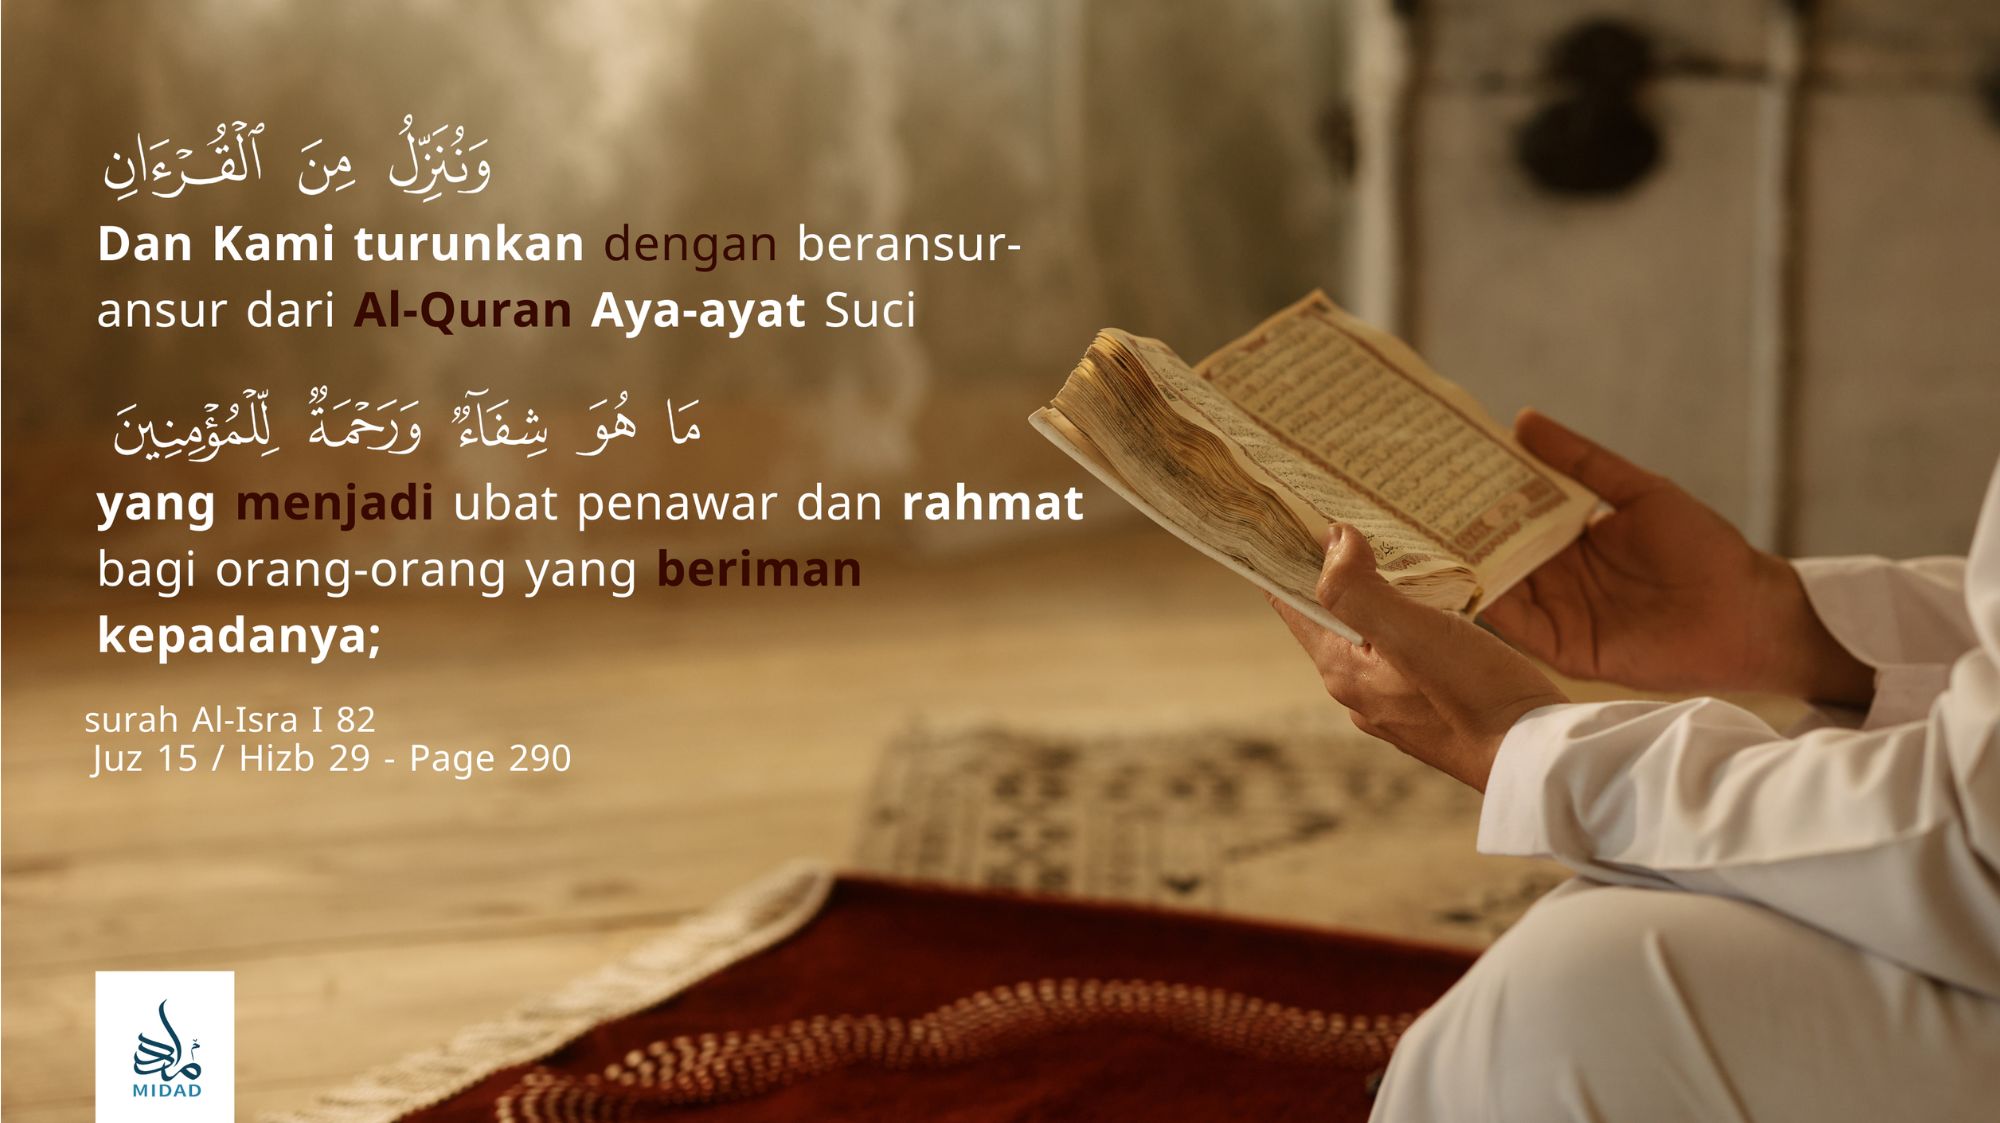 وَنُنَزِّلُ مِنَ ٱلْقُرْءَانِ
Dan Kami turunkan dengan beransur-
ansur dari Al-Quran Aya-ayat Suci
مَا هُوَ شِفَآءٌ وَرَحْمَةٌ لِّلْمُؤْمِنِينَ
yang menjadi ubat penawar dan rahmat
bagi orang-orang yang beriman
kepadanya;
surah Al-Isra I 82
Juz 15 / Hizb 29 - Page 290
مداد
MIDAD